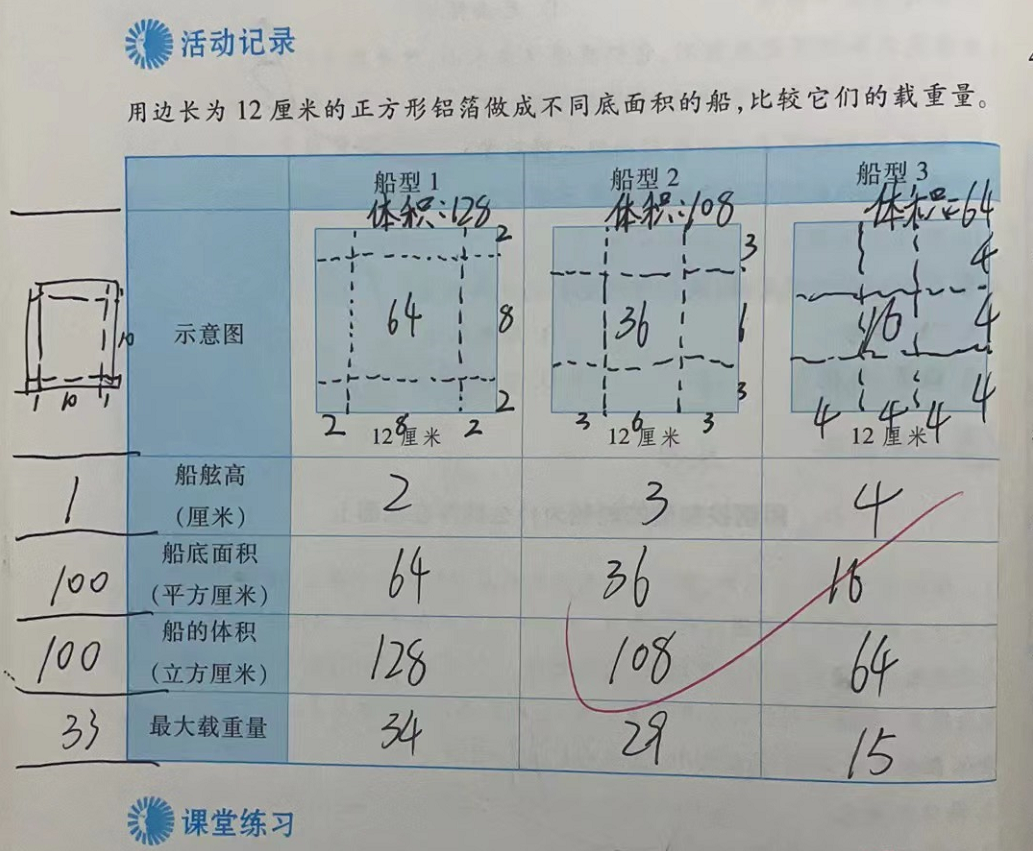 活动记录
用边长为12厘米的正方形铝箔做成不同底面积的船,比较它们的载重量。
船型1 船型2 船型3
体积:128 体积:108 体积:64
2 3 4
示意图 64 8 36 6 16 4
10
2 3 4
1 10 1 2 8 2 3 6 3 4 4 4
12厘米 12厘米 12厘米
船舷高
(厘米)
1 2 3 4
船底面积
(平方厘米)
100 64 36 16
船的体积
(立方厘米)
100 128 108 64
33 最大载重量 34 29 15
课堂练习